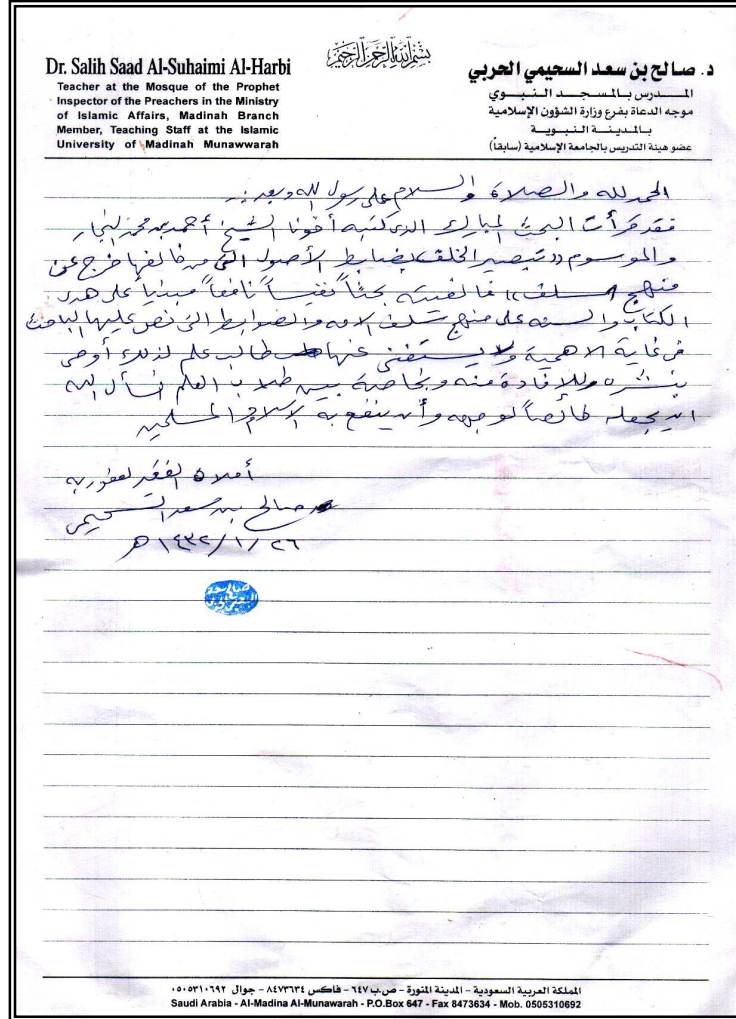 بسم الله الرحمن الرحيم
Dr. Salih Saad Al-Suhaimi Al-Harbi
Teacher at the Mosque of the Prophet
Inspector of the Preachers in the Ministry
of Islamic Affairs, Madinah Branch
Member, Teaching Staff at the Islamic
University of Madinah Munawwarah
د. صالح بن سعد السحيمي الحربي
المدرس بالمسجد النبوي
موجه الدعاة بفرع وزارة الشؤون الإسلامية
بالمدينة النبوية
عضو هيئة التدريس بالجامعة الإسلامية (سابقاً)
الحمد لله والصلاة والسلام على رسول الله وبعد:
فقد قرأت البحث المبارك الذي كتبه أخونا الشيخ أحمد بن محمد النجار
والموسوم «تبصير الخلف بضابط الأصول التي من خالفها خرج عن
منهج السلف» فألفيته بحثاً نفيساً نافعاً مبنياً على هدى
الكتاب والسنة على منهج سلف الأمة والضوابط التي نص عليها الباحث
في غاية الأهمية ولا يستغني عنها طالب علم لذلك أوصي
بنشره وللإفادة منه وبخاصة بين طلاب العلم نسأل الله
أن يجعله خالصاً لوجهه وأن ينفع به الإسلام والمسلمين
أملاه الفقير لعفو ربه
صالح بن سعد السحيمي
٢٦/١/١٤٣٢ هـ
المملكة العربية السعودية - المدينة المنورة - ص.ب ٦٤٧ - فاكس ٨٤٧٣٦٣٤ - جوال ٠٥٠٥٣١٠٦٩٢
Saudi Arabia - Al-Madina Al-Munawarah - P.O.Box 647 - Fax 8473634 - Mob. 0505310692